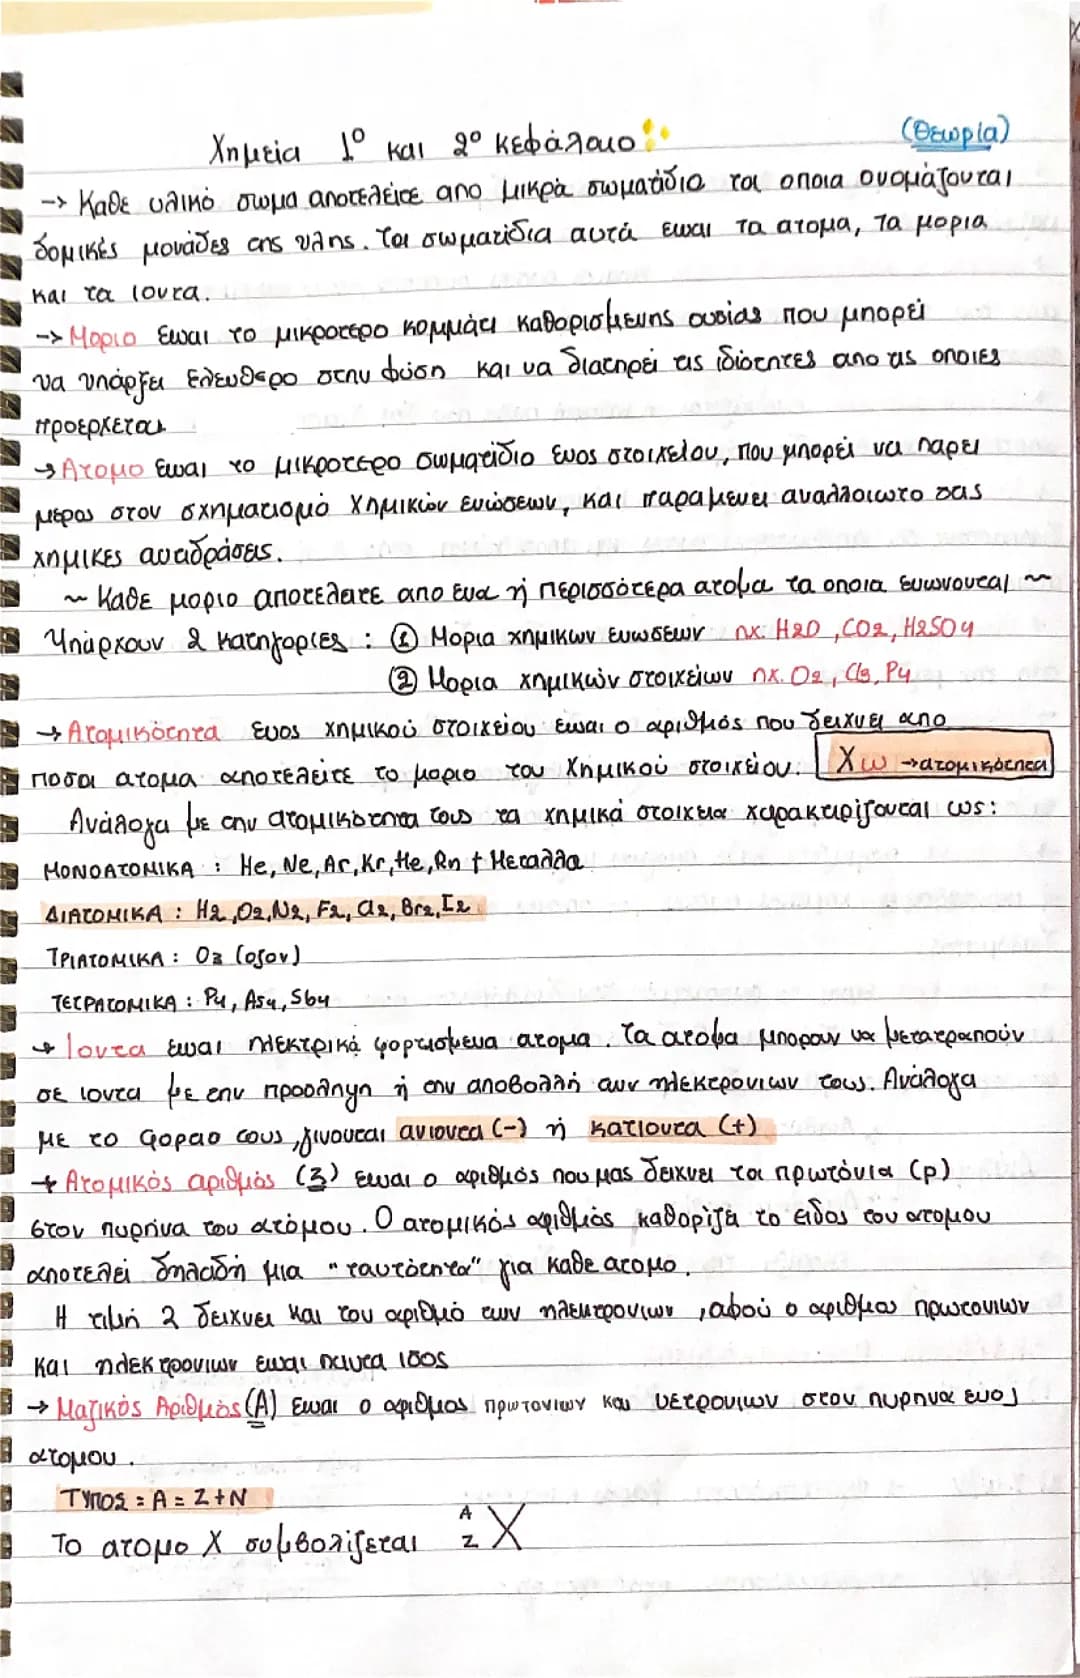 Χημεία 1º και 2º κεφάλαιο
(Θεωρία)
-> Καθε υλικό σωμα αποτελείτε απο μικρά σωματίδια τα οποια ονομάζονται
δομικές μονάδες της υλης. Τα σωματίδια αυτά ειναι τα ατομα, τα μορια
και τα ιοντα.
-> Μοριο ειναι το μικροτερο κομμάτι καθορισμενης ουσίας που μπορεί
να υπάρξει ελευθερο στην φύση και να διατηρεί τις ιδιότητες απο τις οποιες
προερχεται
→ Ατομο ειναι το μικροτερο σωματίδιο ενος στοιχείου, που μπορεί να παρει
μερος στον σχηματισμό χημικών ενώσεων, και παραμενει αναλλοιωτο στις
χημικες αναδράσεις.
~ Καθε μοριο αποτελειτε απο ενα ή περισσότερα ατομα τα οποια ενωνονται ~
Υπάρχουν 2 κατηγορίες : ① Μορια χημικων ενωσεων πχ. H2O, CO2, H2SO4
② Μορια χημικών στοιχείων πχ. O2, Cl2, P4
→ Ατομικότητα ενος χημικού στοιχείου ειναι ο αριθμός που δειχνει απο
ποσα ατομα αποτελείτε το μοριο του χημικού στοιχείου. Χω →ατομικότητα
Ανάλογα με την ατομικότητα τους τα χημικά στοιχεια χαρακτιρίζονται ως:
ΜΟΝΟΑΤΟΜΙΚΑ : He, Ne, Ar, Kr, He, Rn + Μεταλλα
ΔΙΑΤΟΜΙΚΑ : H2, O2, N2, F2, Cl2, Br2, I2
ΤΡΙΑΤΟΜΙΚΑ : O3 (οζον)
ΤΕΤΡΑΤΟΜΙΚΑ : P4, As4, Sb4
→ Ιοντα ειναι ηλεκτρικά φορτισμενα ατομα. Τα ατομα μπορουν να μετατραπούν
σε ιοντα με την προσληψη ή την αποβολλή των ηλεκτρονιων τους. Ανάλογα
με το φορτιο τους, γινονται ανιοντα (-) ή κατιοντα (+)
→ Ατομικός αριθμός (Z) ειναι ο αριθμός που μας δειχνει τα πρωτόνια (p)
στον πυρήνα του ατόμου. Ο ατομικός αριθμός καθορίζει το ειδος του ατομου
αποτελεί δηλαδή μια "ταυτότητα" για καθε ατομο.
Η τιμή Z δειχνει και τον αριθμό των ηλεκτρονιων, αφού ο αριθμος πρωτονιων
και ηλεκτρονιων ειναι παντα ισος
→ Μαζικός Αριθμός (A) ειναι ο αριθμος πρωτονιων και νετρονιων στον πυρηνα ενος
ατομου.
ΤΥΠΟΣ = A = Z + N
Το ατομο X συμβολίζεται ᴬ_Z X